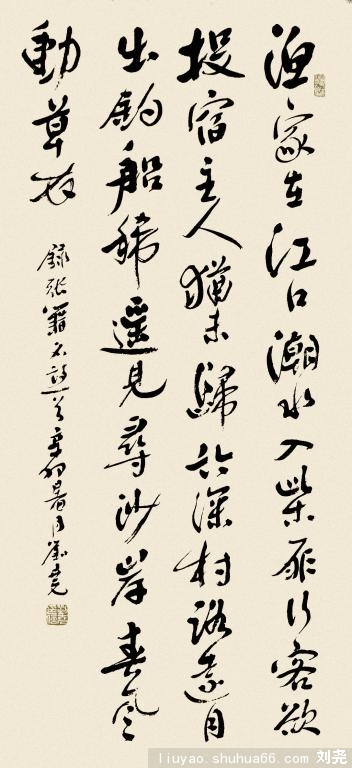 漁家在江口潮水入柴扉行客欲
投宿主人猶未歸竹深村路遠月
出釣船稀遙見尋沙岸春風
動草衣
錄張籍 詩 辛卯暑月劉堯
liuyao.shuhua66.com 刘尧